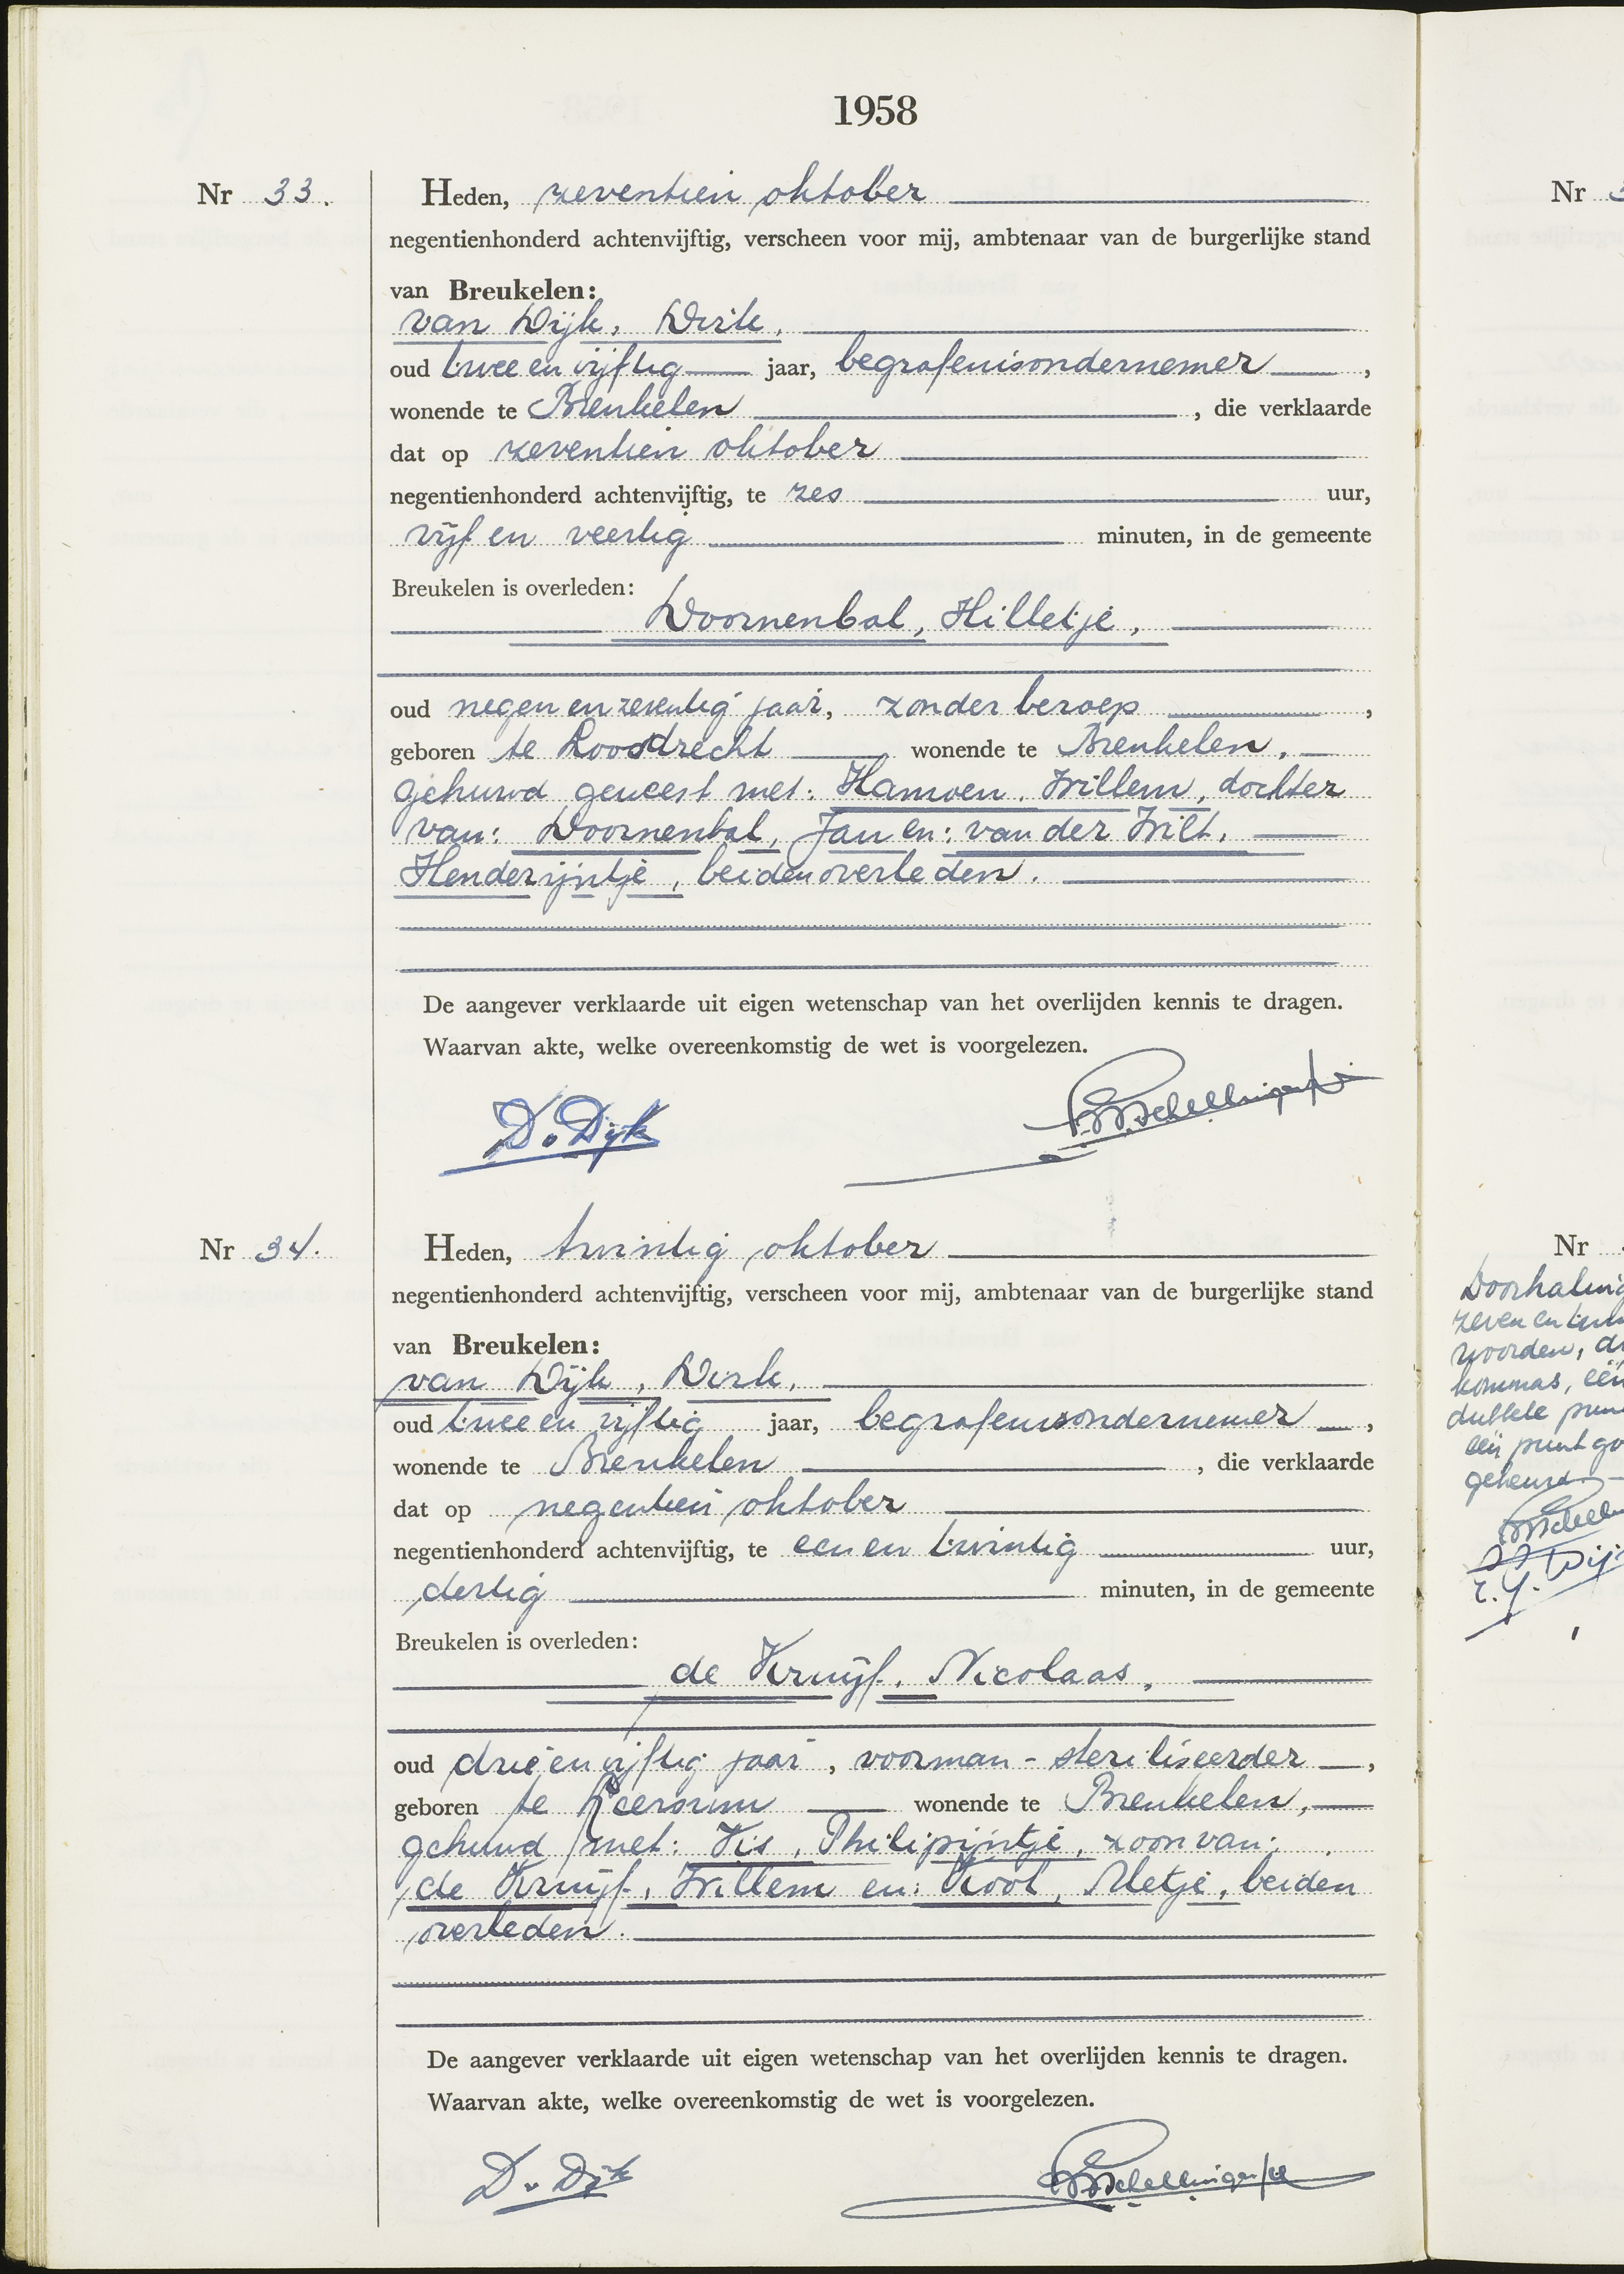 1958
Nr 33.
Heden, zeventien oktober
negentienhonderd achtenvijftig, verscheen voor mij, ambtenaar van de burgerlijke stand
van Breukelen:
van Dijk, Dirk,
oud twee en vijftig jaar, begrafenisondernemer,
wonende te Breukelen, die verklaarde
dat op zeventien oktober
negentienhonderd achtenvijftig, te zes uur,
vijf en veertig minuten, in de gemeente
Breukelen is overleden:
Doornenbal, Hilletje,
oud negen en zeventig jaar, zonder beroep,
geboren te Loosdrecht wonende te Breukelen,
gehuwd geweest met: Hamoen, Willem, dochter
van: Doornenbal, Jan en: van der Wilt,
Henderijntje, beiden overleden.
De aangever verklaarde uit eigen wetenschap van het overlijden kennis te dragen.
Waarvan akte, welke overeenkomstig de wet is voorgelezen.
D. v Dijk
Nr 34.
Heden, twintig oktober
negentienhonderd achtenvijftig, verscheen voor mij, ambtenaar van de burgerlijke stand
van Breukelen:
van Dijk, Dirk,
oud twee en vijftig jaar, begrafenisondernemer,
wonende te Breukelen, die verklaarde
dat op negentien oktober
negentienhonderd achtenvijftig, te een en twintig uur,
dertig minuten, in de gemeente
Breukelen is overleden:
de Kruijf, Nicolaas,
oud drie en vijftig jaar, voorman-steriliseerder,
geboren te Leersum wonende te Breukelen,
gehuwd met: Vis, Philipijntje, zoon van:
de Kruijf, Willem en: Kool, Metje, beiden
overleden.
De aangever verklaarde uit eigen wetenschap van het overlijden kennis te dragen.
Waarvan akte, welke overeenkomstig de wet is voorgelezen.
D. v Dijk
Nr
Nr
Doorhaling
zeven en
woorden,
kommas, één
dubbele
één punt
gekeurd